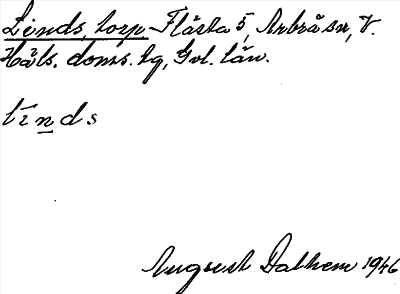 Linds torp - Flästa 5, Arbrå sn, V.
Häls. doms. hg, Gvl. län.
linds
August Dalhem 1946